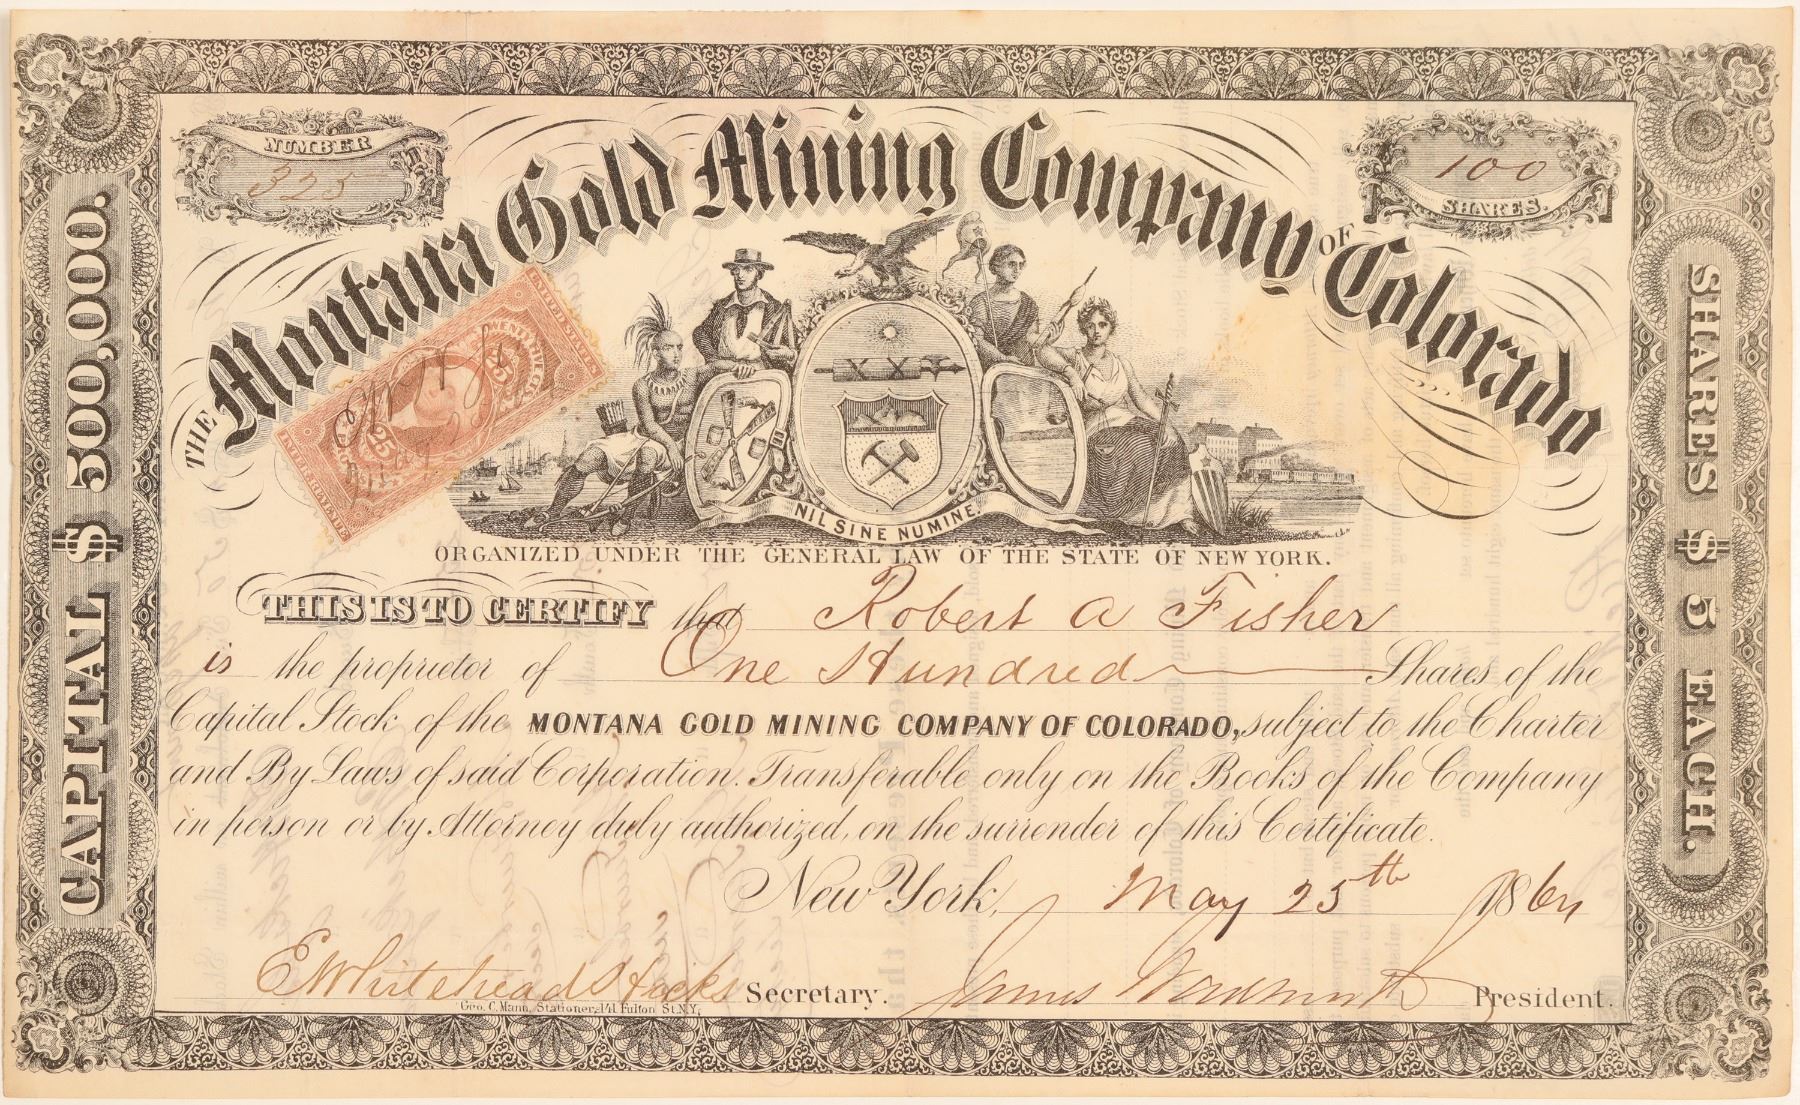 NUMBER
325
100
SHARES.
THE Montana Gold Mining Company OF Colorado
CAPITAL $ 500,000.
SHARES $ 5 EACH.
UNITED STATES
TWENTY FIVE CTS.
25
25
INTER. REVENUE
NIL SINE NUMINE
ORGANIZED UNDER THE GENERAL LAW OF THE STATE OF NEW YORK.
THIS IS TO CERTIFY that Robert A Fisher
is the proprietor of One Hundred Shares of the
Capital Stock of the MONTANA GOLD MINING COMPANY OF COLORADO, subject to the Charter
and By Laws of said Corporation. Transferable only on the Books of the Company
in person or by Attorney duly authorized, on the surrender of this Certificate.
New York, May 25th 1864
E Whitehead Hicks Secretary.
James Wadsworth President.
Geo. C. Mann, Stationer, 141 Fulton St. N.Y.